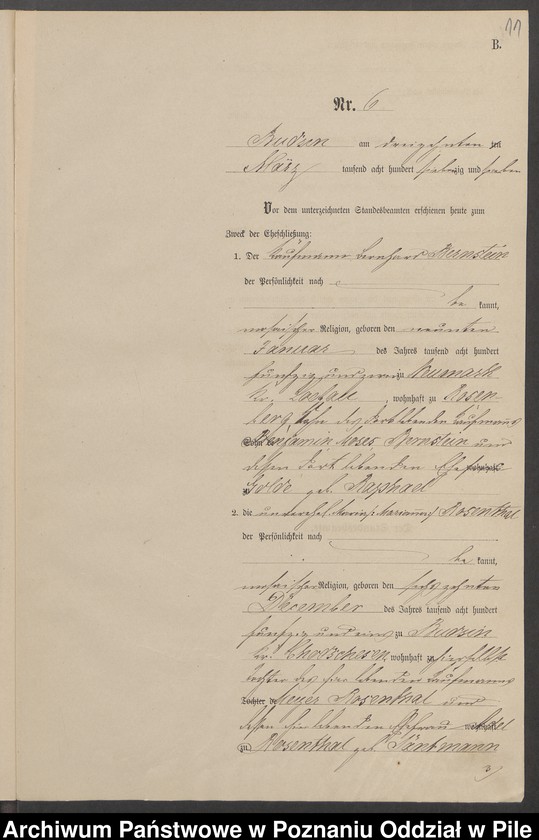 11
B.
Nr. 6
Budzin am dreizehnten ten
März tausend acht hundert siebenzig und sieben
Vor dem unterzeichneten Standesbeamten erschienen heute zum
Zweck der Eheschließung:
1. Der Kaufmann Bernhard Bernstein
der Persönlichkeit nach
be kannt,
mosaischer Religion, geboren den neunten
Januar des Jahres tausend acht hundert
fünfzig und zwei zu Neumark
Kr. Loebau, wohnhaft zu Rosen-
berg, Sohn des dort lebenden Kaufmanns
Benjamin Moses Bernstein und
dessen dort lebenden Ehefrau
Golde geb. Raphael
2. die unverehel. Rosenthal
der Persönlichkeit nach
be kannt,
mosaischer Religion, geboren den sechszehnten
December des Jahres tausend acht hundert
fünfzig und eins zu Budzin
Kr. Chodschesen, wohnhaft zu hierselbst
Tochter des hier lebenden Kaufmanns
Meyer Rosenthal und
dessen hier lebenden Ehefrau
zu Rosenthal geb.
Archiwum Państwowe w Poznaniu Oddział w Pile